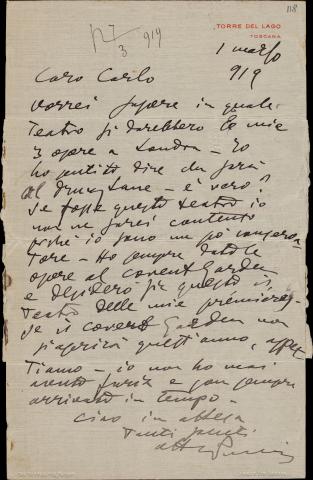 118
3 919
TORRE DEL LAGO
TOSCANA
1 marzo
919
Caro Carlo
vorrei sapere in quale
Teatro si darebbero le mie
3 opere a Londra – Io
ho sentito dire che sarà
al Drury Lane – è vero?
Se fosse questo teatro io
non ne sarei contento
perchè io sono un pò conserva-
tore – Ho sempre dato le
opere al Covent Garden
e desidero sia questo il
Teatro delle mie premières –
Se il Covent Garden non
s'aprirà quest'anno, aspet
tiamo – io non ho mai
avuto furia e son sempre
arrivato in tempo –
Ciao in attesa
Tanti saluti
Puccini